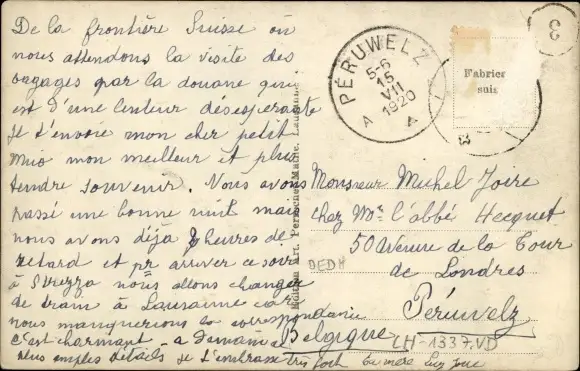 De la frontière Suisse où
nous attendons la visite des
bagages par la douane qui
est d'une lenteur désespérante
Je t'envoie mon cher petit
mon meilleur et plus
tendre souvenir. Nous avons
passé une bonne nuit mais
nous avons déjà 2 heures de
retard et pr arriver ce soir
à Strezza nous allons changer
de train à Lausanne car
nous manquerions la correspondance
c'est charmant - à demain
plus amples détails je t'embrasse très fort
ta mère
Edition Art. Perrochet-Matile, Lausanne
PÉRUWELZ
5-6
15
VII
1920
A A
3
Fabriqué
suis
Monsieur Michel Joire
chez Mr l'abbé Hecquet
50 avenue de la Tour
de Londres
Péruvelz
Belgique
DEDH
CH-1337.VD